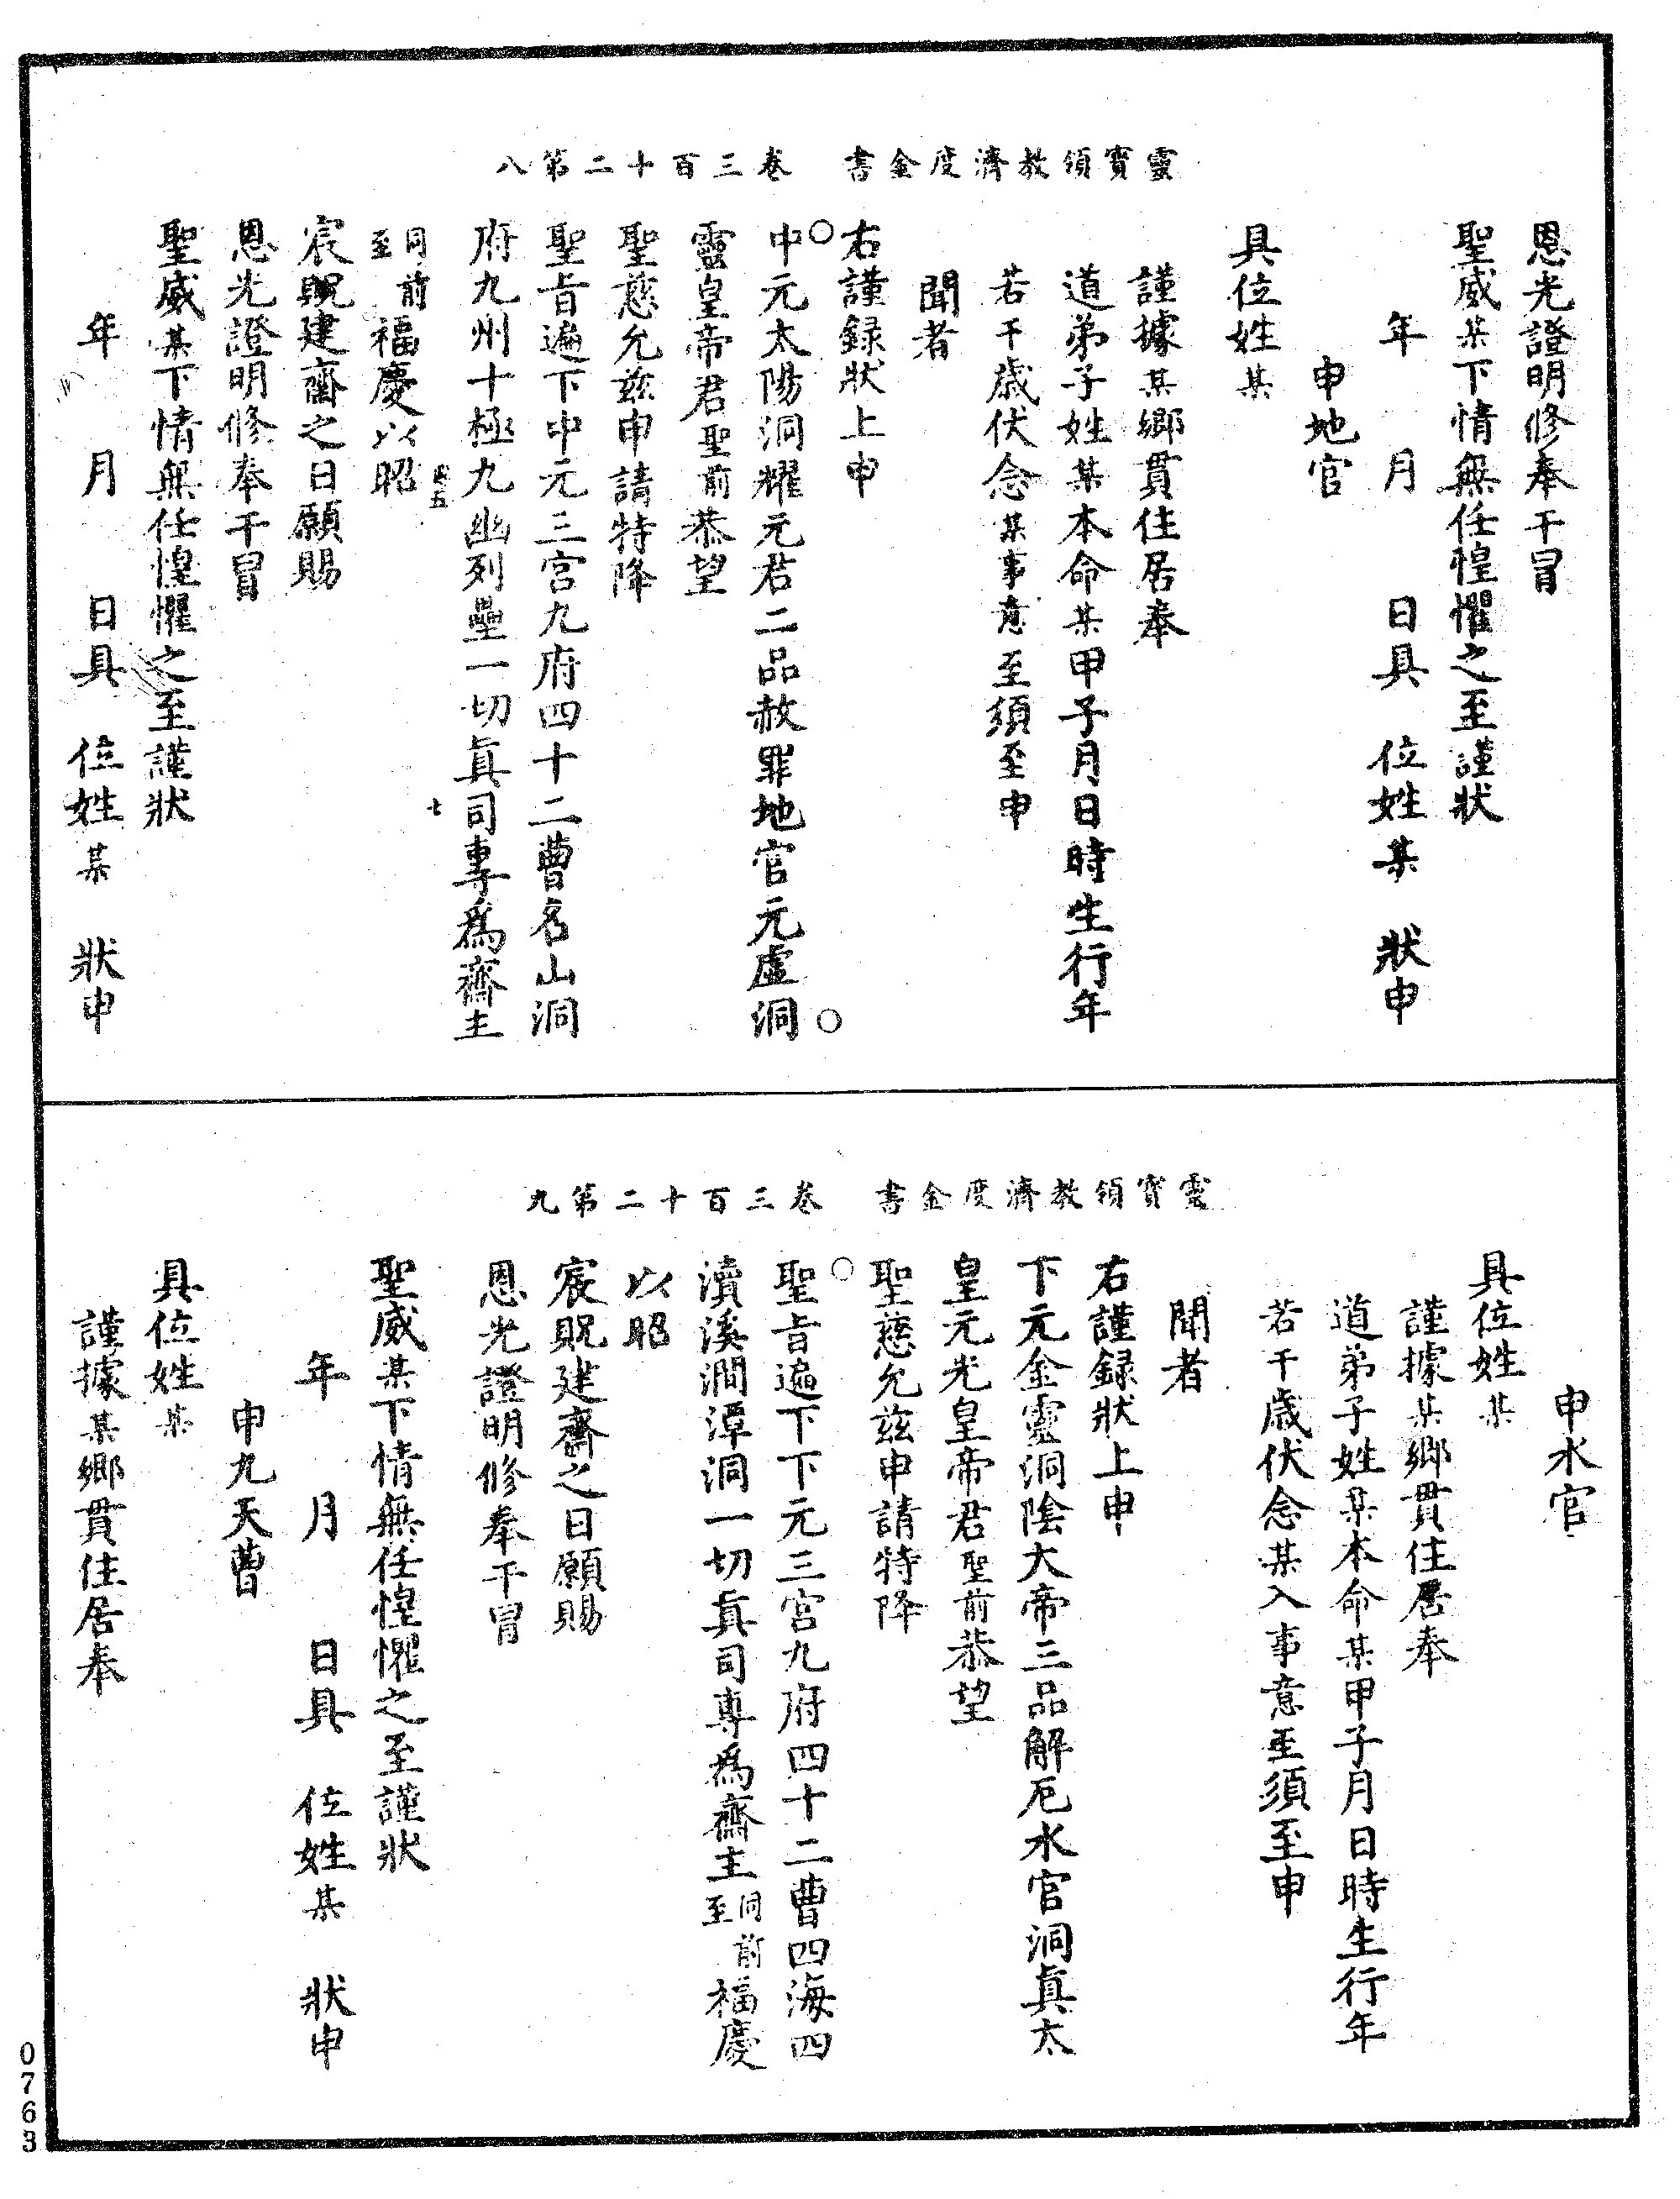 靈寶領教濟度金書　卷三百二十第八
恩光證明修奉干冒
聖威某下情無任惶懼之至謹狀
年　月　日具　位姓某　狀申
申地官
具位姓某
謹據某鄉貫住居奉
道弟子姓某本命某甲子月日時生行年
若干歲伏念某事意至須至申
聞者
右謹錄狀上申
中元太陽洞耀元君二品赦罪地官元虛洞
靈皇帝君聖前恭望
聖慈允茲申請特降
聖旨遍下中元三宮九府四十二曹名山洞
府九州十極九幽列壘一切真司專為齋主
同前至福慶以昭
宸貺建齋之日願賜
恩光證明修奉干冒
聖威某下情無任惶懼之至謹狀
年　月　日具　位姓某　狀申
靈寶領教濟度金書　卷三百二十第九
申水官
具位姓某
謹據某鄉貫住居奉
道弟子姓某本命某甲子月日時生行年
若干歲伏念某入事意至須至申
聞者
右謹錄狀上申
下元金靈洞陰大帝三品解厄水官洞真太
皇元光皇帝君聖前恭望
聖慈允茲申請特降
聖旨遍下下元三宮九府四十二曹四海四
瀆溪澗潭洞一切真司專為齋主同前至福慶
以昭
宸貺建齋之日願賜
恩光證明修奉干冒
聖威某下情無任惶懼之至謹狀
年　月　日具　位姓某　狀申
申九天曹
具位姓某
謹據某鄉貫住居奉
0763